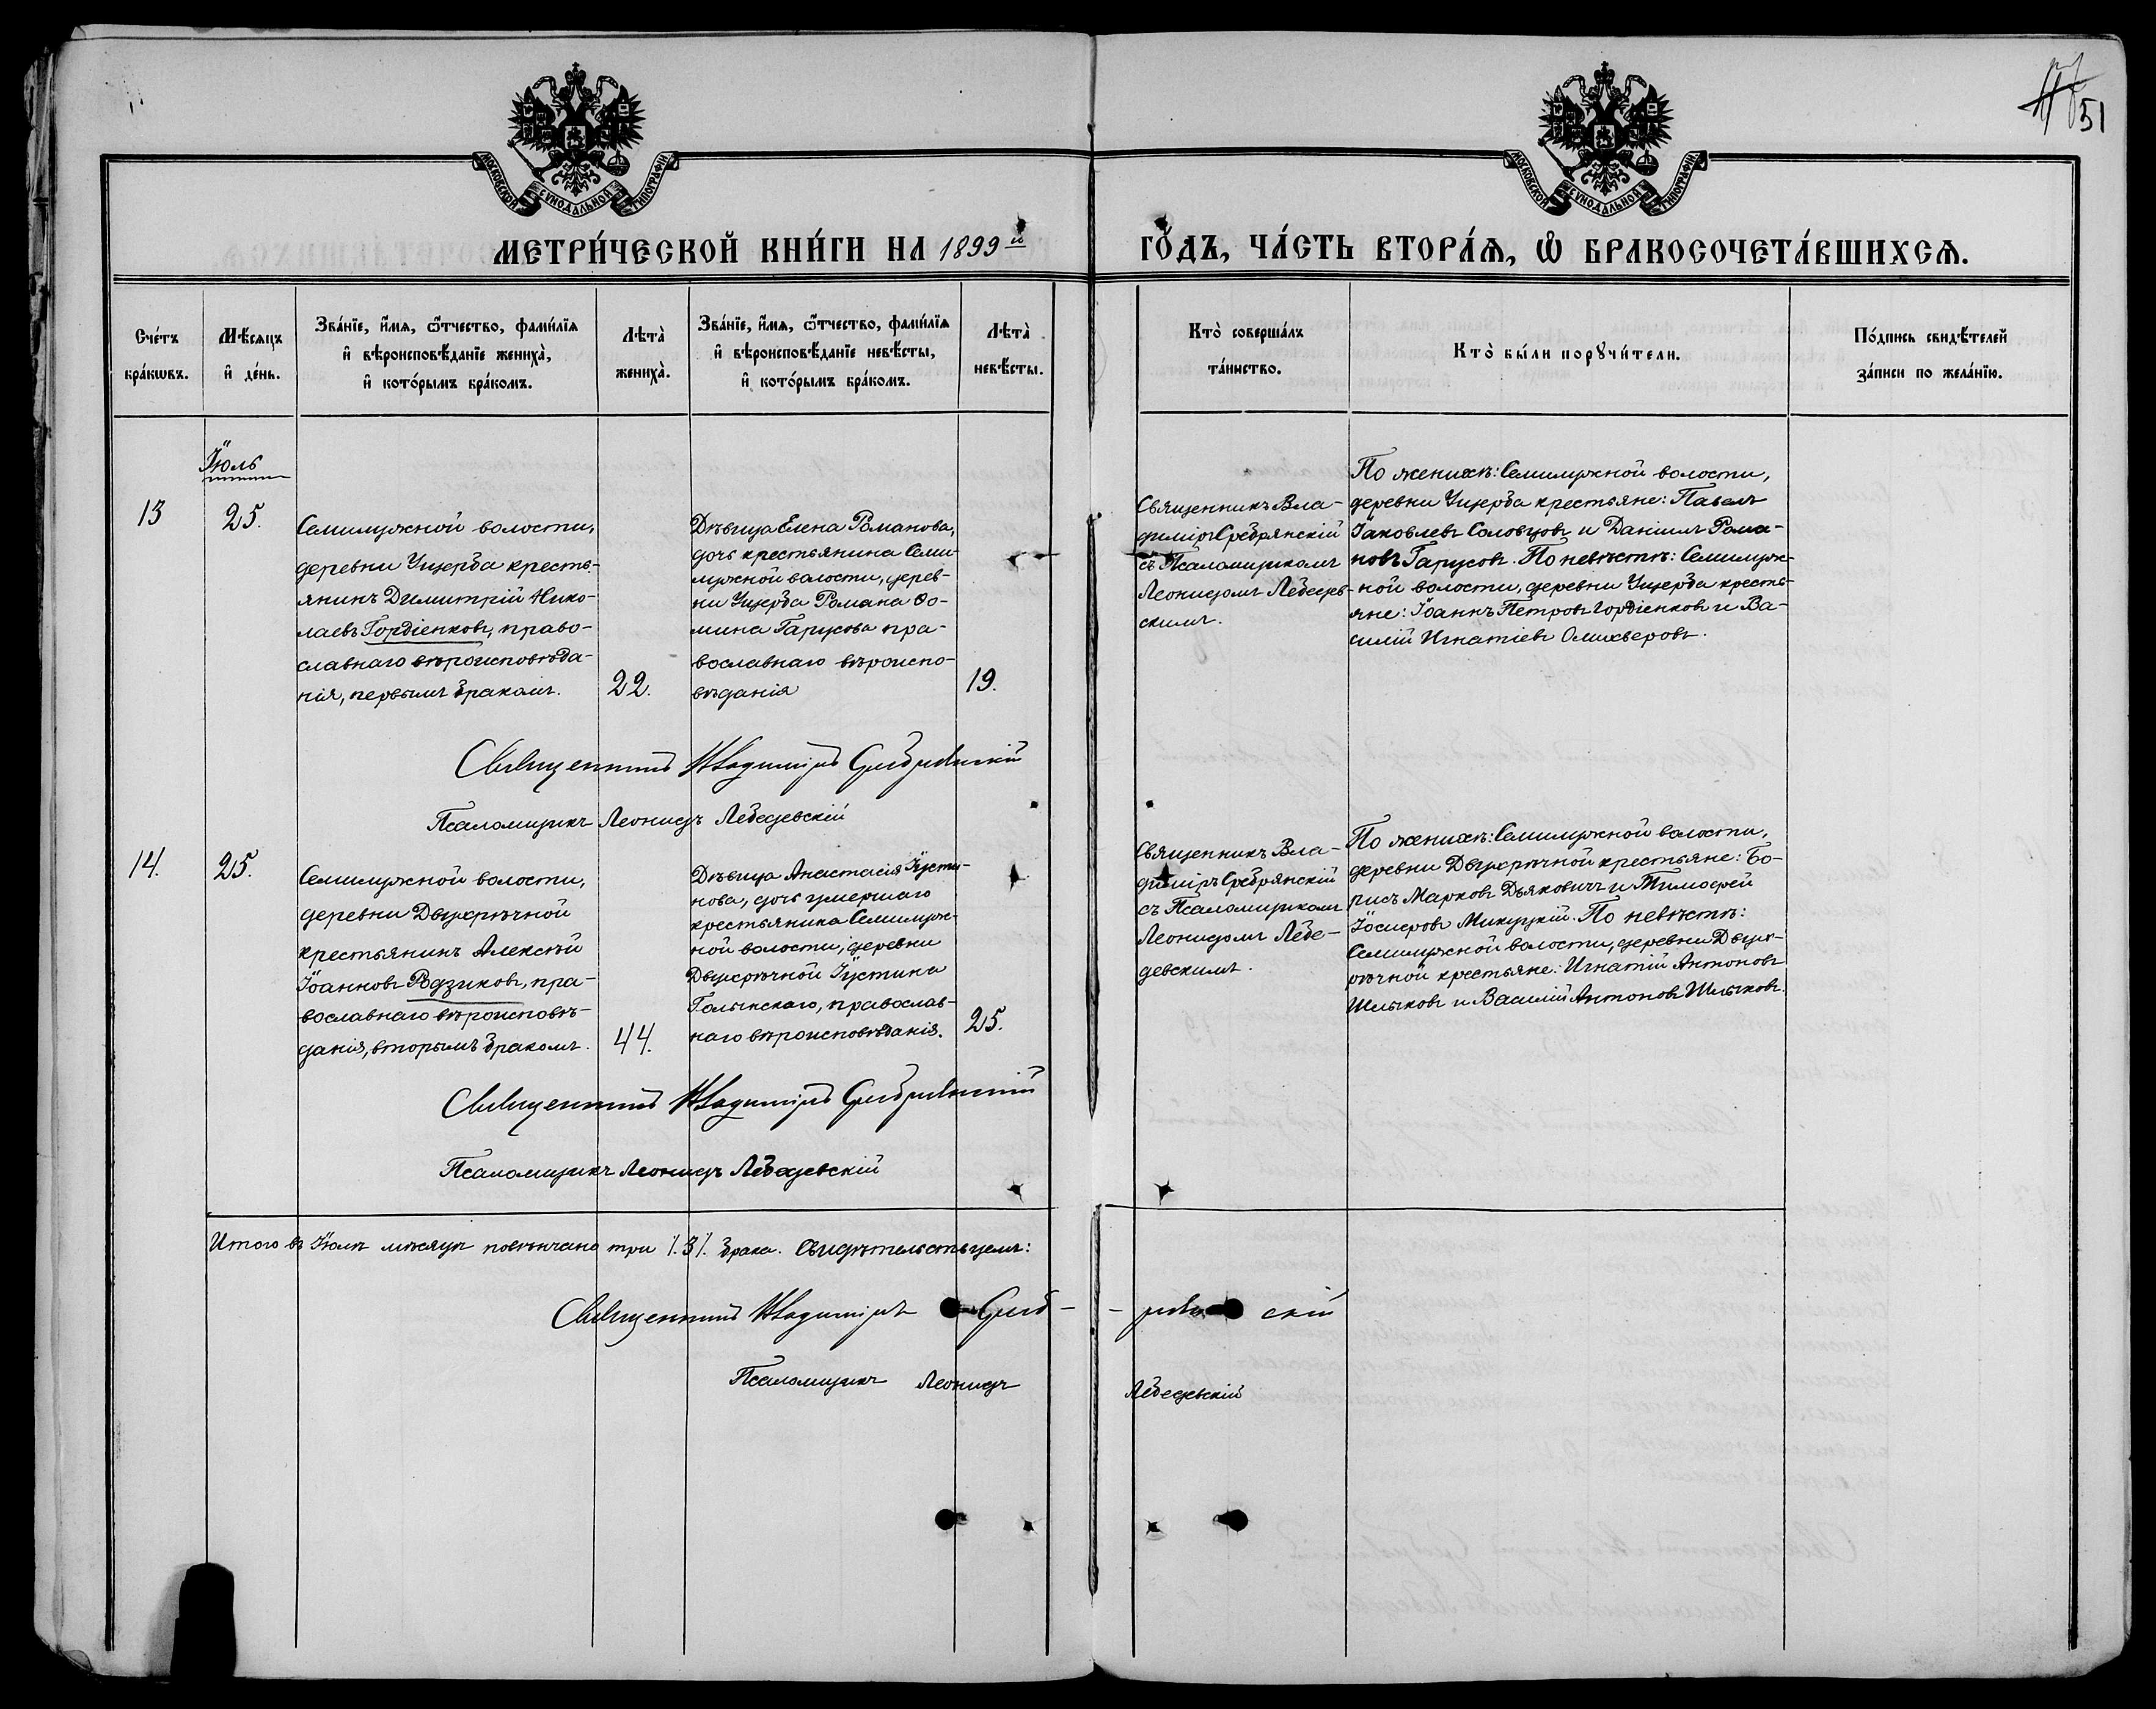 51
МОСКОВСКОЙ СѴНОДАЛЬНОЙ ТИПОГРАФІИ
МОСКОВСКОЙ СѴНОДАЛЬНОЙ ТИПОГРАФІИ
МЕТРИ́ЧЕСКОЙ КНИ́ГИ НА 1899й ГО́ДЪ, ЧА́СТЬ ВТОРА́Ѧ, Ѽ БРАКОСОЧЕТА́ВШИХСѦ.
Сче́тъ
бра́кѡвъ.
Мѣ́сяцъ
и҆ де́нь.
Зва́нїе, и҆́мѧ, ѻ҆́тчество, фами́лїѧ
и҆ вѣроисповѣ́данїе жениха̀,
и҆ кото́рымъ бра́комъ.
Лѣта̀
жениха̀.
Зва́нїе, и҆́мѧ, ѻ҆́тчество, фами́лїѧ
и҆ вѣроисповѣ́данїе невѣ́сты,
и҆ кото́рымъ бра́комъ.
Лѣта̀
невѣ́сты.
Кто̀ соверша́лъ
та́инство.
Кто̀ бы́ли порꙋчи́тели.
По́дпись свидѣ́телей
за́писи по жела́нїю.
Іюль
13
25.
Семилужной волости,
деревни Ущерба кресть-
янинъ Димитрій Нико-
лаевъ Гордіенковъ, право-
славнаго вѣроисповѣда-
нія, первымъ бракомъ.
22.
Дѣвица Елена Романова,
дочь крестьянина Семи-
лужной волости, дерев-
ни Ущерба Романа Ѳо-
мина Гарусова пра-
вославнаго вѣроиспо-
вѣданія
19.
Священникъ Вла-
диміръ Сребрянскій
съ Псаломщикомъ
Леонидомъ Лебедев-
скимъ.
По женихѣ: Семилужной волости,
деревни Ущерба крестьяне: Павелъ
Іаковлевъ Соловцовъ и Даніилъ Рома-
новъ Гарусовъ. По невѣстѣ: Семилуж-
ной волости, деревни Ущерба кресть-
яне: Іоаннъ Петровъ Гордіенковъ и Ва-
силій Игнатіевъ Олихверовъ.
Священникъ Владиміръ Сребрянскій
Псаломщикъ Леонидъ Лебедевскій
14.
25.
Семилужной волости,
деревни Двухрѣчной
крестьянинъ Алексѣй
Іоанновъ Родзиковъ, пра-
вославнаго вѣроисповѣ-
данія, вторымъ бракомъ.
44.
Дѣвица Анастасія Іусти-
нова, дочь умершаго
крестьянина Семилуж-
ной волости, деревни
Двухрѣчной Іустина
Голынскаго, православ-
наго вѣроисповѣданія.
25.
Священникъ Вла-
диміръ Сребрянскій
съ Псаломщикомъ
Леонидомъ Лебе-
девскимъ.
По женихѣ: Семилужной волости,
деревни Двухрѣчной крестьяне: Бо-
рисъ Марковъ Дьяковичъ и Тимоѳей
Іосифовъ Микуцкій. По невѣстѣ:
Семилужной волости, деревни Двух-
рѣчной крестьяне: Игнатій Антоновъ
Шлыковъ и Василій Антоновъ Шлыковъ.
Священникъ Владиміръ Сребрянскій
Псаломщикъ Леонидъ Лебедевскій
Итого въ Іюлѣ мѣсяцѣ повѣнчано три ⁒3⁒ брака. Свидѣтельствуемъ:
Священникъ Владиміръ Среб- -рянскій
Псаломщикъ Леонидъ Лебедевскій